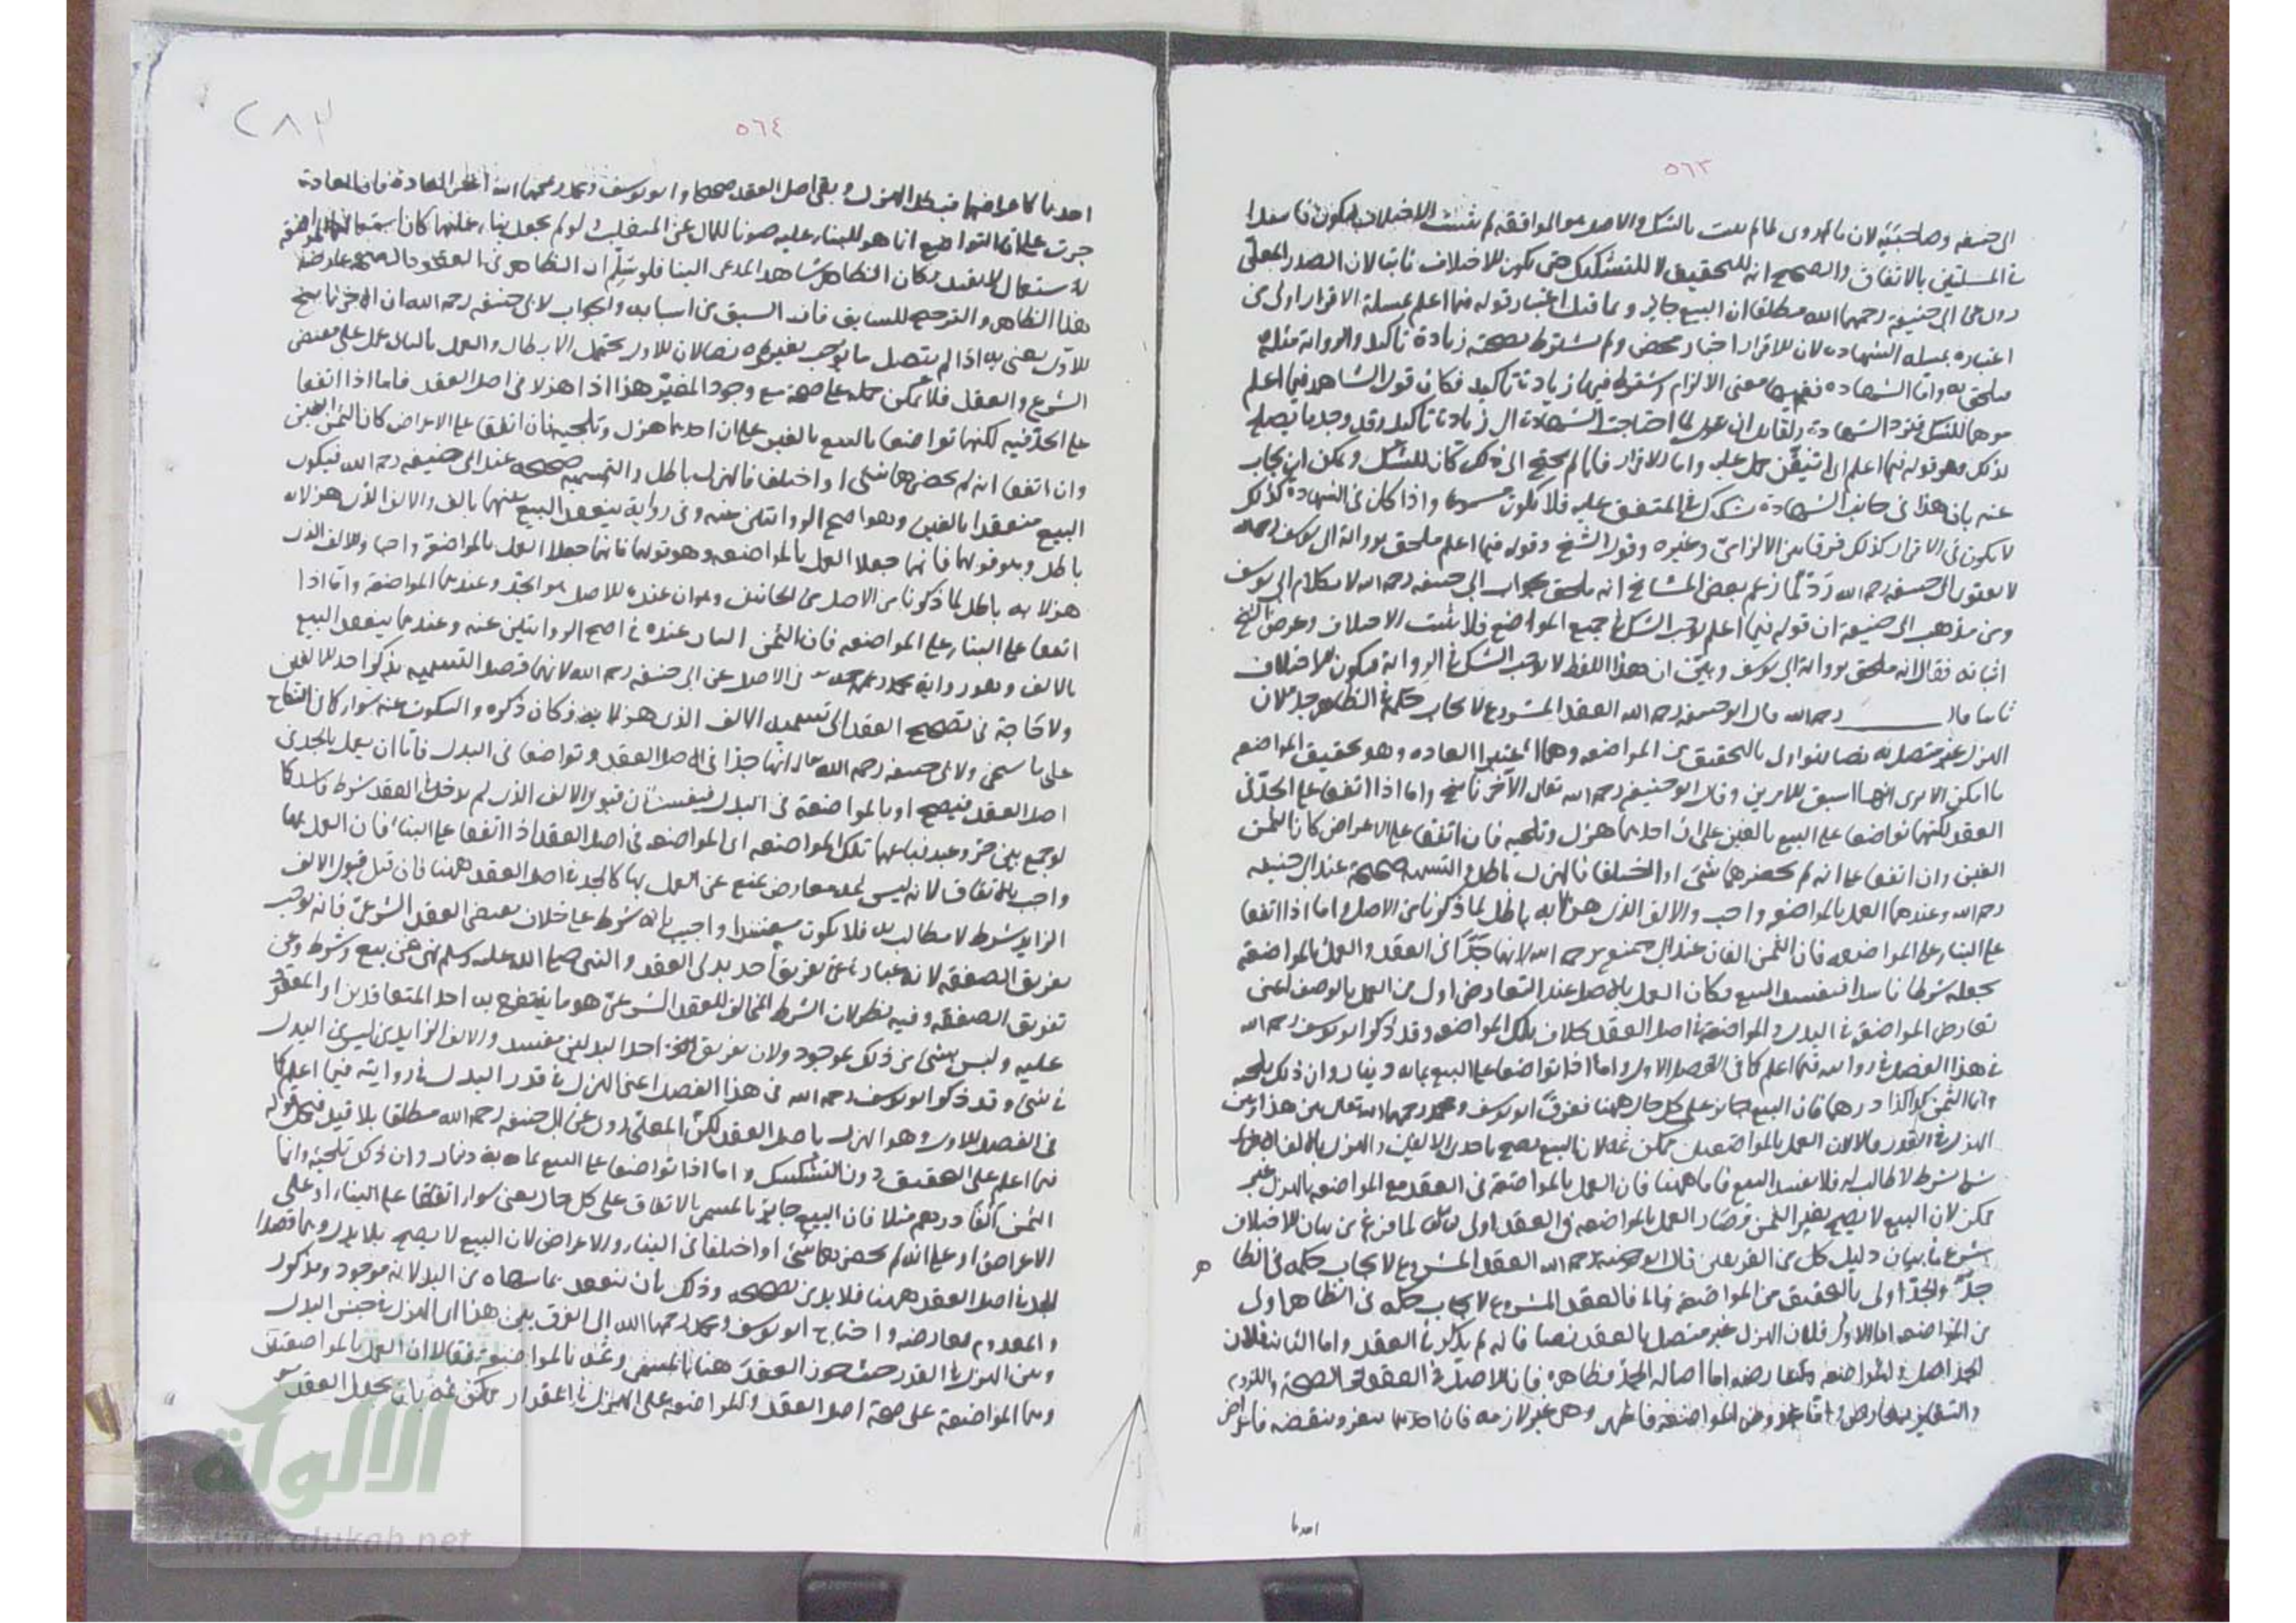 ٥٦٣
ابى حنيفه وصاحبيه لان ما لم يثبت بالشك والاصل هو الموافقة لم يثبت الاختلاف فيكون
فى المسلتين بالاتفاق والصحيح انه للتحقيق لا للتشكيك حتى يكون للاختلاف ثابتا لان الصدر المعلى
روى عن ابى حنيفة رحمهما الله مطلقا ان البيع جايز وبما قيل اعتبار قوله فيما اعلم بمسلة الاقرار اولى من
اعتباره بمسلة الشهاده لان للاقرار اخبار محض ولم يشترط لصحته زيادة تاكيد والرواية مثله
ملحق به واما الشهاده ففيها معنى الالزام وشرط فيها زيادة تاكيد فكان قول الشاهد فيما اعلم
موهما للشك فترد الشهادة ولقايل ان يقول لما احتاجت الشهادة الى زيادة تاكيد وقد وجد ما يصلح
لذلك وهو قوله فيما اعلم اى اتيقن حمل عليه واما الاقرار فلما لم يحتج الى ذلك كان للشك ويمكن ان يجاب
عنه بان هذا فى جانب الشهادة شك فى المتفق عليه فلا يكون واذا كان فى الشهادة كذلك
لا يكون فى الاقرار كذلك فرقا بين الالزامى وغيره وقول الشيخ وقوله فيما اعلم ملحق برواية ابى يوسف رحمه الله
لا بقول ابى حنيفه رحمه الله رد لما زعم بعض المشايخ انه ملحق بجواب ابى حنيفه رحمه الله لا بكلام ابى يوسف
ومن مذهب ابى حنيفة ان قوله فيما اعلم يوجب الشك فى جميع المواضع فلا يثبت الاختلاف وغرض الشيخ
اثباته فقال انه ملحق برواية ابى يوسف وبين ان هذا اللفظ لا يوجب الشك فى الرواية فيكون الاختلاف
ثابتا قال رحمه الله قال ابو حنيفه رحمه الله العقد المشروع لايجاب حكمه فى الظاهر جد لان
الهزل غير متصل به نصا فهو اولى بالتحقيق من المواضعه وهما اعتبرا العاده وهو تحقيق المواضعه
ما امكن الا ترى انها اسبق الامرين وقال ابو حنيفه رحمه الله تعالى الآخر ناسخ واما اذا اتفقا على الجد فى
العقد لكنهما تواضعا على البيع بالفين على ان احدهما هزل وتلجيه فان اتفقا على الاعراض كان الثمن
الفين وان اتفقا على انه لم يحضرهما شئ او اختلفا فالهزل باطل والتسميه صحيحة عند ابى حنيفه
رحمه الله وعندهما العمل بالمواضعه واجب والالف الذى هزلا به باطل لما ذكرنا من الاصل واما اذا اتفقا
على البناء على المواضعه فان الثمن الفان عند ابى حنيفه رحمه الله لانهما جدا فى العقد والعمل بالمواضعة
يجعله شرطا فاسدا فيفسد البيع فكان العمل بالاصل عند التعارض اولى من العمل بالوصف اعنى
تعارض المواضعة فى البدل والمواضعة فى اصل العقد بخلاف تلك المواضعه وقد ذكر ابو يوسف رحمه الله
فى هذا الفصل فى روايته فيما اعلم كما فى الفصل الاول واما اذا تواضعا على البيع بمائة دينار وان ذلك تلجيه
وانما الثمن كذا كذا درهما فان البيع جايز على كل حال ههنا ففرق ابو يوسف ومحمد رحمهما الله تعالى بين هذا وبين
الهزل فى القدر فقالا لان العمل بالمواضعتين ممكن ثمة لان البيع يصح باحد الالفين والهزل بالالف الاخر
شرط لا طالب له فلا يفسد البيع فاما ههنا فان العمل بالمواضعة فى العقد مع المواضعه بالهزل غير
ممكن لان البيع لا يصح بغير الثمن فصار العمل بالمواضعه فى العقد اولى لما فرغ من بيان الاختلاف
شرع فى بيان دليل كل من الفريقين قال ابو حنيفة رحمه الله العقد المشروع لايجاب حكمه فى الظا
هر
جد والجد اولى بالتحقيق من المواضعة فالعقد المشروع لايجاب حكمه فى الظاهر اولى
من المواضعه اما الاول فلان الهزل غير متصل بالعقد نصا فانه لم يذكر فى العقد واما الثانى فلان
الجد اصل والمواضعه تعارضه اما اصالة الجد فظاهره فان الاصل فى العقود الصحة واللزوم
والتغاير بعارض واما عروض المواضعة فاظهر وهى غير لازمه فان احدهما ينفرد بنقضه فاعراض
احدهما
٢٨٢
٥٦٤
احدهما كاعراضهما فبطل الهزل وبقى اصل العقد صحيحا وابو يوسف ومحمد رحمهما الله اعتبرا العادة فان العادة
جرت على ان التواضع انما هو للبناء عليه صونا للمال عن المتغلب ولو لم يجعل بناء عليها كان استعمالهما المواضعة
استعمال ما لا يفيد فكان الظاهر شاهدا لمدعى البناء فلو سلم ان الظاهر فى العقود الصحة عارضه
هذا الظاهر والترجيح للسابق فان السبق من اسبابه والجواب لابى حنيفه رحمه الله ان الآخر ناسخ
للاول يعنى به اذا لم يتصل ما يوجب تغييره نصا لان الاول يحتمل الابطال والعمل بالثانى عمل على مقتضى
الشرع والعقل فلا يمكن حمله على صحة مع وجود المغير هذا اذا هزلا فى اصل العقد فاما اذا اتفقا
على الجد فيه لكنهما تواضعا بالبيع بالفين على ان احدهما هزل وتلجيه فان اتفقا على الاعراض كان الثمن الفين
وان اتفقا انه لم يحضرهما شئ او اختلفا فالهزل باطل والتسميه صحيحه عند ابى حنيفه رحمه الله فيكون
البيع منعقدا بالفين وهو اصح الروايتين عنه وفى رواية ينعقد البيع عنهما بالف والالف الذى هزلا به
باطل وهو قولهما فانهما جعلا العمل بالمواضعة واجبا والالف الذى
هزلا به باطل لما ذكرنا من الاصل من الجانبين وهو ان عنده الاصل هو الجد وعندهما المواضعة واما اذا
اتفقا على البناء على المواضعه فان الثمن الفان عنده فى اصح الروايتين عنه وعندهما ينعقد البيع
بالالف وهو رواية محمد رحمه الله فى الاصل عن ابى حنيفه رحمه الله لانهما قصدا التسميه بذكر احد الالفين
ولا حاجة فى تصحيح العقد الى تسمية الالف الذى هزلا به فكان ذكره والسكوت عنه سواء كان النكاح
على ما سيجئ ولابى حنيفه رحمه الله انهما جدا فى اصل العقد وتواضعا فى البدل فاما ان يعمل بالجد فى
اصل العقد فيصح او بالمواضعة فى البدل فيفسد لان قبول الالف الذى لم يدخل فى العقد شرط فاسد كما
لو جمع بين حر وعبد تلك المواضعه اى المواضعه فى اصل العقد اذا اتفقا على البناء فان العمل بها
واجب بالاتفاق لانه ليس ثمه معارض يمنع عن العمل بها كالجد فى اصل العقد ههنا فان قيل قبول الالف
الزايد شرط لا مطالب به فلا يكون مفسدا واجيب بانه شرط على خلاف مقتضى العقد الشرعى فانه يوجب
تفريق الصفقه لانه عبارة عن تفريق احد بدلى العقد والنبى صلى الله عليه وسلم نهى عن بيع وشرط وعن
تفريق الصفقه وفيه نظر لان الشرط المخالف للعقد الشرعى هو ما ينتفع به احد المتعاقدين او المعقود
عليه وليس شئ من ذلك بموجود ولان تفريق احد البدلين مفسد والالف الزايد ليس من البدل
فى شئ وقد ذكر ابو يوسف رحمه الله فى هذا الفصل اعنى الهزل فى قدر البدل فى روايته فيما اعلم كما
فى الفصل الاول وهو الهزل باصل العقد لكن المعلى روى عن ابى حنيفه رحمه الله مطلقا بلا قيد فيحمل قوله
فيما اعلم على التحقيق دون التشكيك واما اذا تواضعا على البيع بماية دينار وان ذلك تلجئه وانما
الثمن الفا درهم مثلا فان البيع جايز بالمسمى بالاتفاق على كل حال يعنى سواء اتفقا على البناء او على
الاعراض او على انه لم يحضرهما شئ او اختلفا فى البناء والاعراض لان البيع لا يصح بلا بدل وهما قصدا
الجد فى اصل العقد ههنا فلا بد من تصحيحه وذلك بان ينعقد بما سمياه من البدل لانه موجود ومذكور
والمعدوم لا يعارضه واحتاج ابو يوسف ومحمد رحمهما الله الى الفرق بين هذا اى الهزل فى جنس البدل
وبين الهزل فى القدر حيث جوز العقد هنا بالمسمى وثمه بالمواضعة فقالا ان العمل بالمواضعتين
وهما المواضعة على صحة اصل العقد والمواضعه على الهزل فى المقدار ممكن ثمه بان يجعل العقد
الألوكة
www.alukah.net